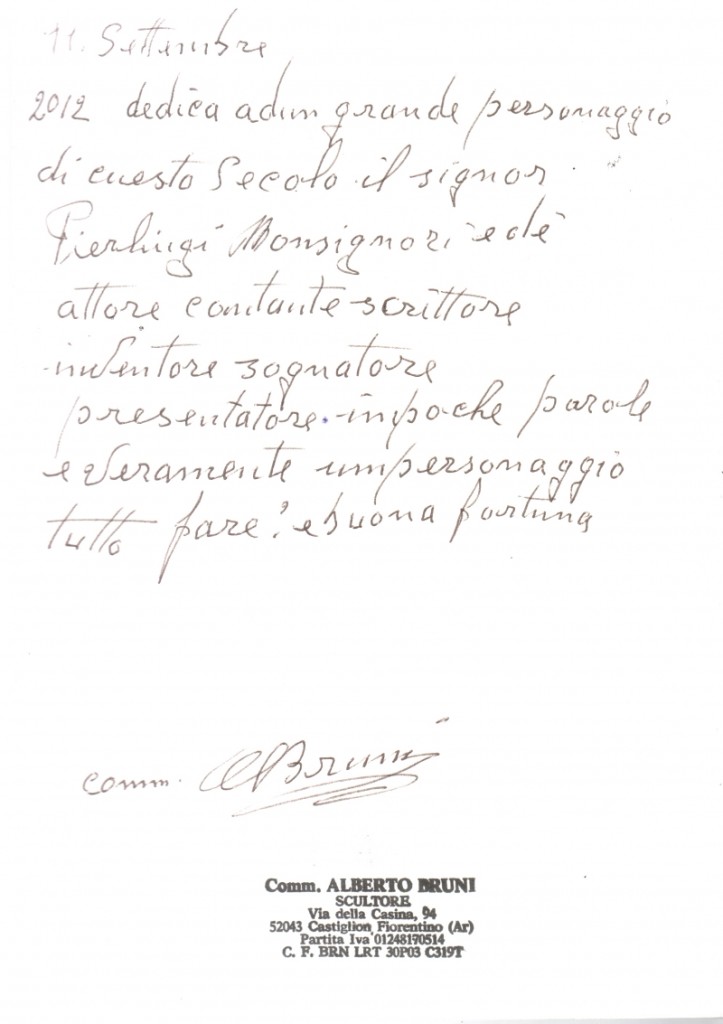 11. Settembre
2012 dedica adun grande personaggio
di cuesto Secolo il signor
Pierluigi Monsignori e dè
attore contante scrittore
inventore sognatore
presentatore. inpoche parole
e veramente umpersonaggio
tutto fare! e buona fortuna
comm. A Bruni
Comm. ALBERTO BRUNI
SCULTORE
Via della Casina, 94
52043 Castiglion Fiorentino (Ar)
Partita Iva 01248170514
C. F. BRN LRT 30P03 C319T